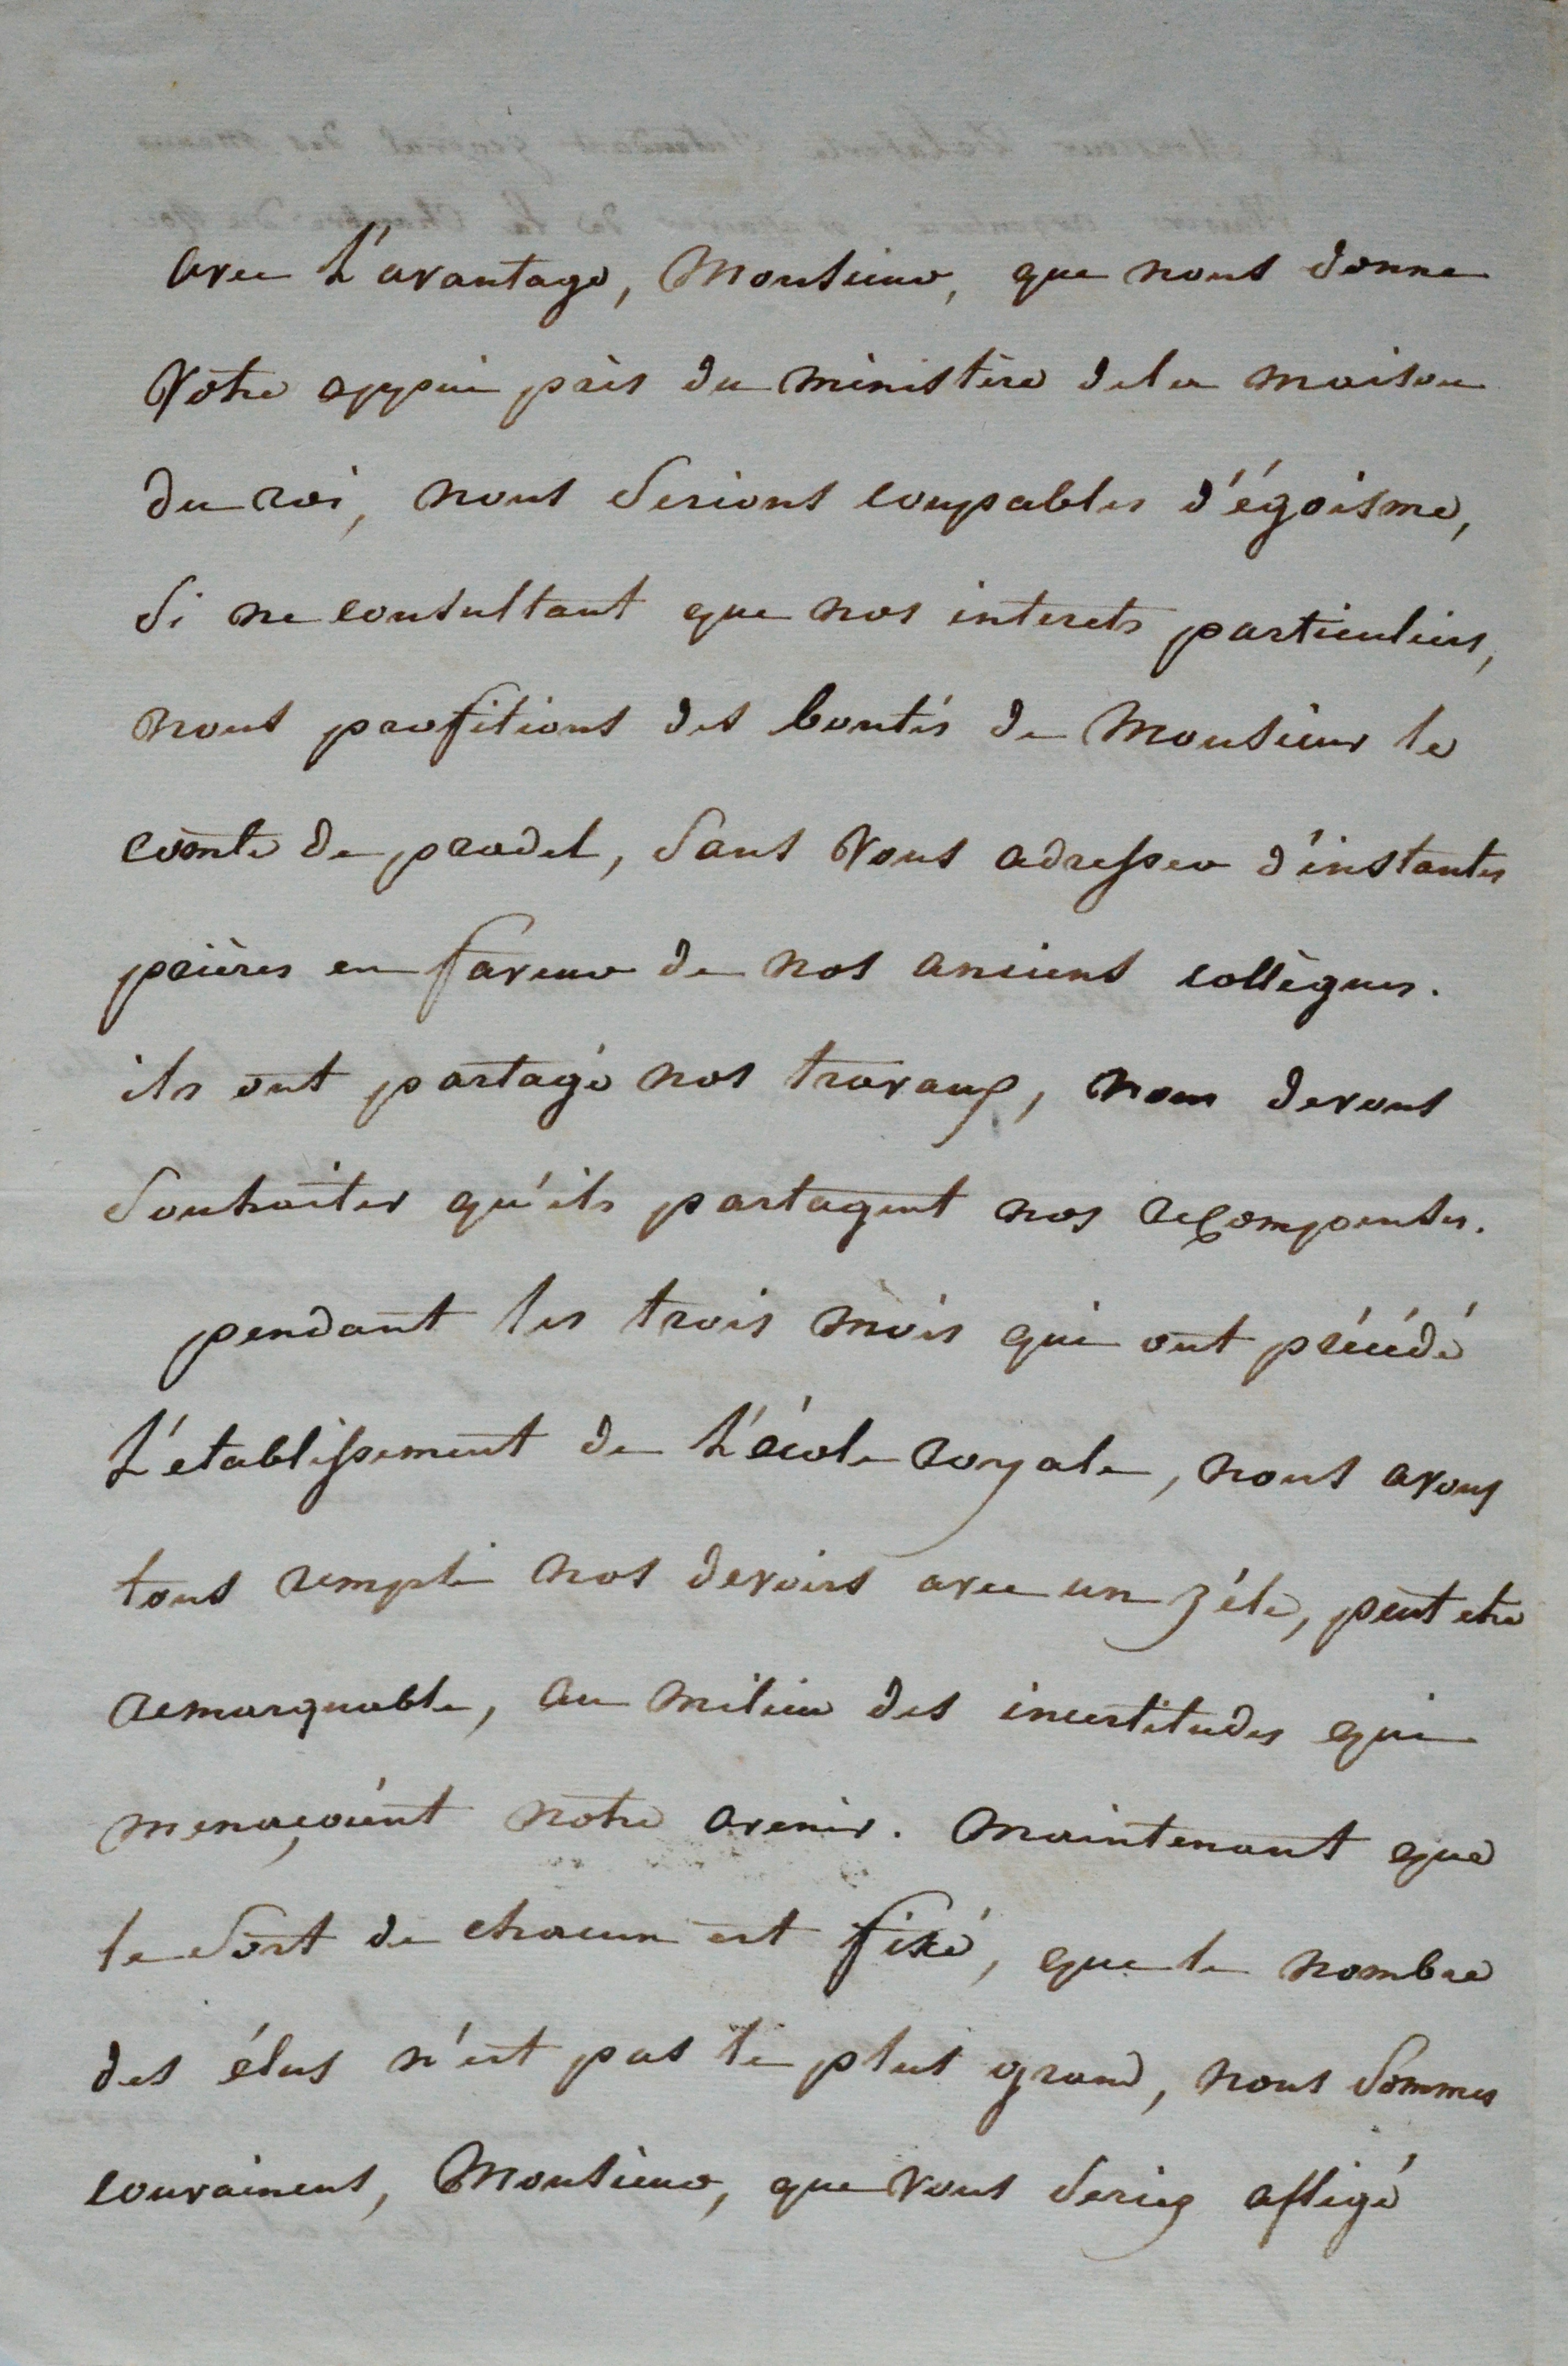 avec L'avantage, Monsieur, que nous donne
Votre appui près du ministère dela maison
du roi, nous serions coupables d'égoisme,
si ne consultant que nos interets particuliers,
nous profitions des bontés de Monsieur le
comte de pradel, sans Vous adresser d'instantes
prières en faveur de nos anciens collègues.
ils ont partagé nos travaux, nous devons
souhaiter qu'ils partagent nos recompenses.
pendant les trois mois qui ont précédé
L'etablissement de L'école royale, nous avons
tous rempli nos devoirs avec un zéle, peut etre
remarquable, au milieu des incertitudes qui
menaçoient notre avenir. maintenant que
le sort de chacun est fixé, que le nombre
des élus n'est pas le plus grand, nous sommes
convaincus, Monsieur, que vous seriez affligé